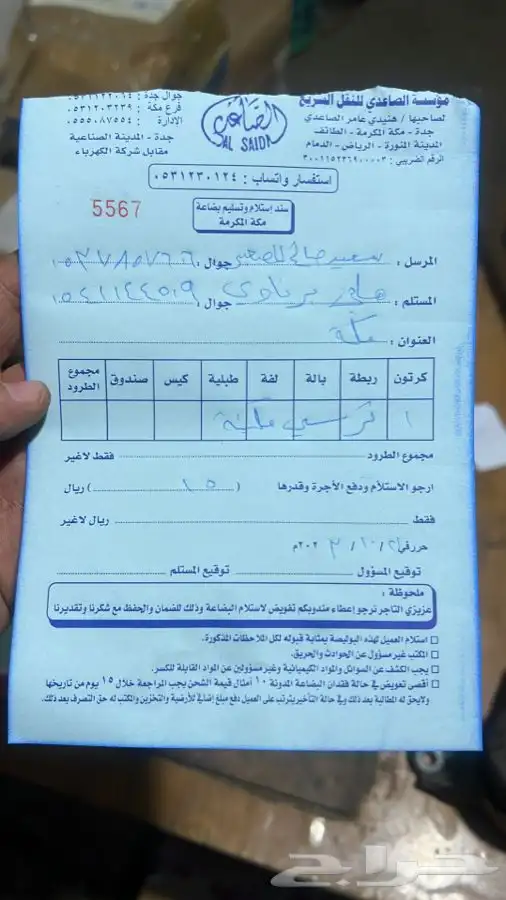 مؤسسة الصاعدي للنقل السريع
لصاحبها / هنيدي عامر الصاعدي
جدة - مكة المكرمة - الطائف
المدينة المنورة - الرياض - الدمام
الرقم الضريبي : ٣٠٠١١٥٢٣٦٩٠٠٠٠٣
الصاعدي
AL SAIDI
جوال جدة : ٠٥٣١١٢٢٠١٤
فرع مكة : ٠٥٣١٢٠٣٢٣٩
الإدارة : ٠٥٥٥٠٨٧٥٥٤
جدة - المدينة الصناعية
مقابل شركة الكهرباء
استفسار واتساب : ٠٥٣١٢٣٠١٢٤
5567
سند إستلام وتسليم بضاعة
مكة المكرمة
المرسل : سعيد صالح جوال : ٠٥٣٧٨٥٧٦٦
المستلم : علي جوال : ٠٥٤١١٤٤٥٠٩
العنوان : مكة
كرتون ربطة بالة لفة طبلية كيس صندوق مجموع الطرود
١ كرسي مكينة
مجموع الطرود فقط لاغير
ارجو الاستلام ودفع الأجرة وقدرها ( ١٥ ) ريال
فقط ريال لاغير
حرر في ٢١ / ١٠ / ٢٠٢٣م
توقيع المسؤول توقيع المستلم
ملحوظة :
عزيزي التاجر نرجو إعطاء مندوبكم تفويض لاستلام البضاعة وذلك للضمان والحفظ مع شكرنا وتقديرنا
استلام العميل لهذه البوليصة بمثابة قبوله لكل الملاحظات المذكورة.
المكتب غير مسؤول عن الحوادث والحريق.
يجب الكشف عن السوائل والمواد الكيميائية وغير مسؤولين عن المواد القابلة للكسر.
أقصى تعويض في حالة فقدان البضاعة المدونة ١٠ أمثال قيمة الشحن يجب المراجعة خلال ١٥ يوم من تاريخها
ولايحق له المطالبة بعد ذلك وفي حالة التأخير يترتب على العميل دفع مبلغ إضافي للأرضية والتخزين والمكتب له حق التصرف بعد ذلك.
حراج